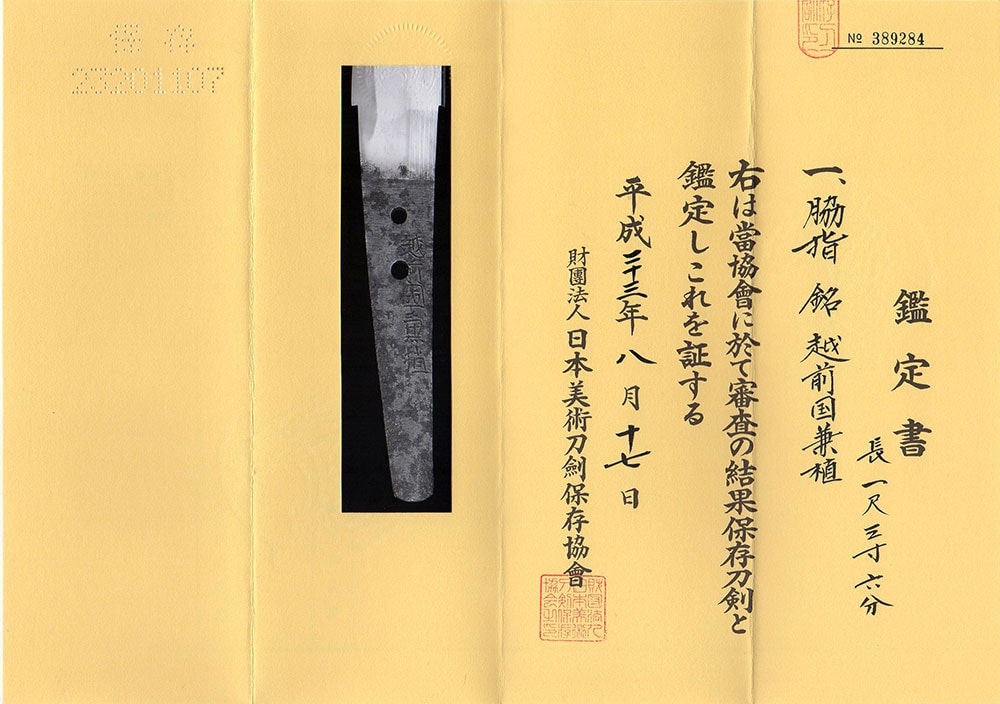 № 389284
鑑定書
長 一尺三寸六分
一、脇指 銘 越前国兼植
右は當協會に於て審査の結果保存刀剣と
鑑定しこれを証する
平成二十三年八月十七日
財團法人 日本美術刀劍保存協會
越前国兼植
保存
23201107